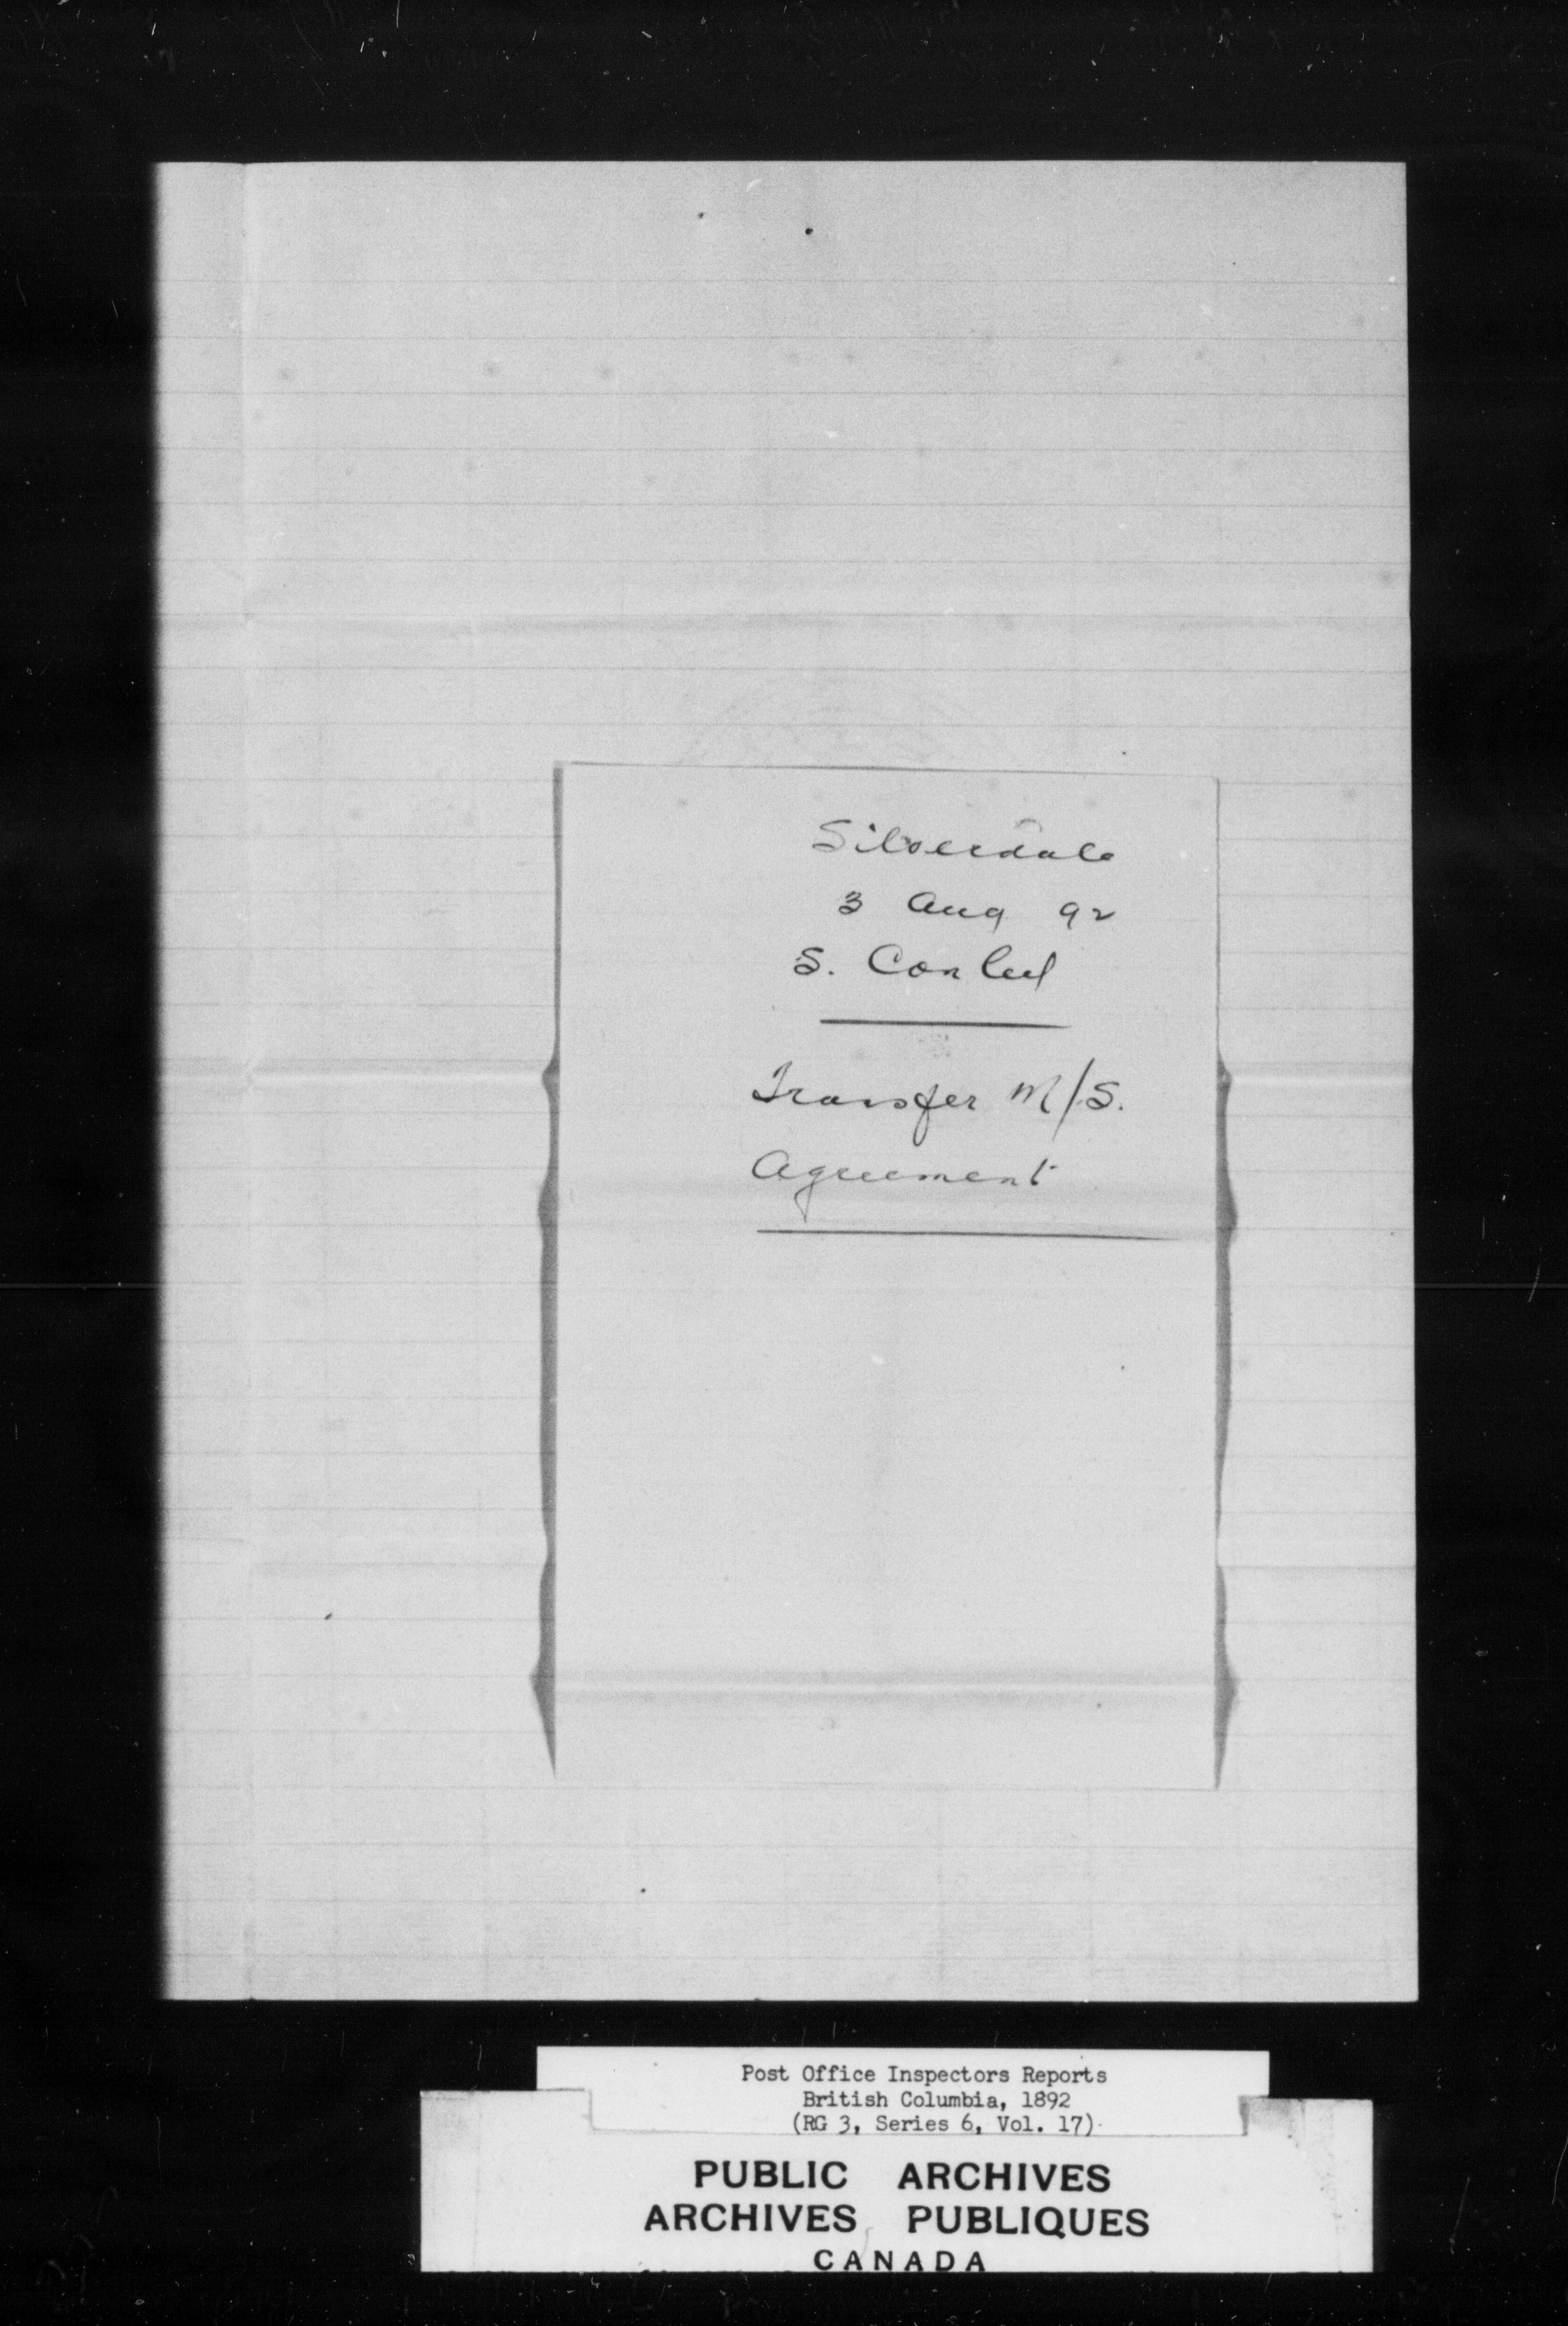 Silverdale
3 Aug 92
S.
Transfer M/S.
Agreement
Post Office Inspectors Reports
British Columbia, 1892
(RG 3, Series 6, Vol. 17)
PUBLIC ARCHIVES
ARCHIVES PUBLIQUES
CANADA